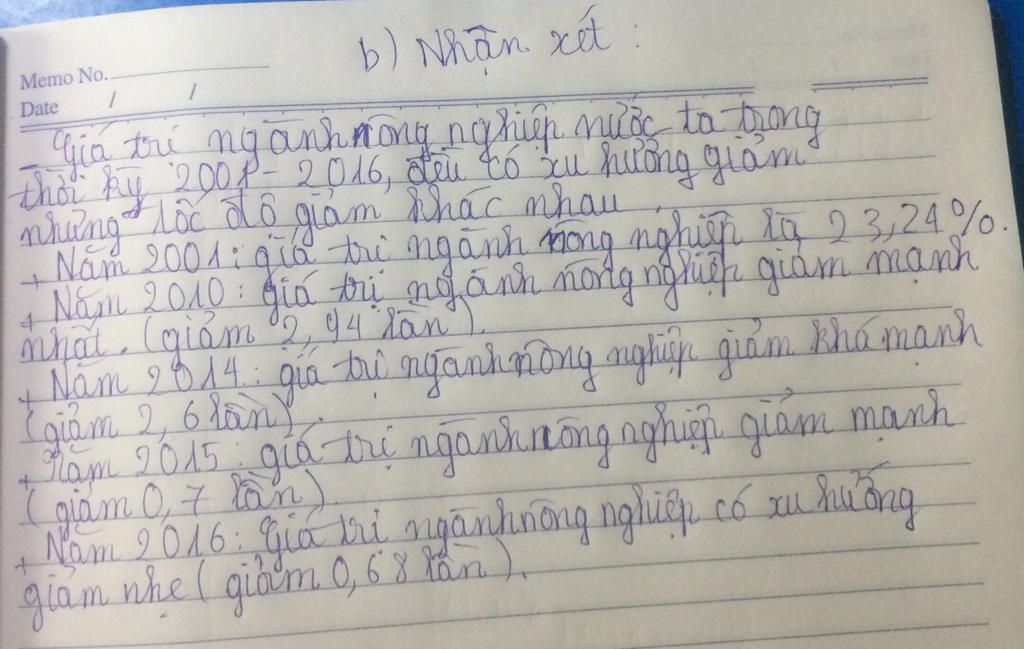 b) Nhận xét :
Memo No.
Date / /
Giá trị ngành nông nghiệp nước ta trong
thời kỳ 2001 - 2016, đều có xu hướng giảm
nhưng tốc độ giảm khác nhau.
+ Năm 2001 : giá trị ngành nông nghiệp là 23,24%.
+ Năm 2010 : giá trị ngành nông nghiệp giảm mạnh
nhất. (giảm 2,94 lần).
+ Năm 2014 : giá trị ngành nông nghiệp giảm khá mạnh
(giảm 2,6 lần).
+ Năm 2015 : giá trị ngành nông nghiệp giảm mạnh
(giảm 0,7 lần)
+ Năm 2016 : Giá trị ngành nông nghiệp có xu hướng
giảm nhẹ (giảm 0,68 lần).